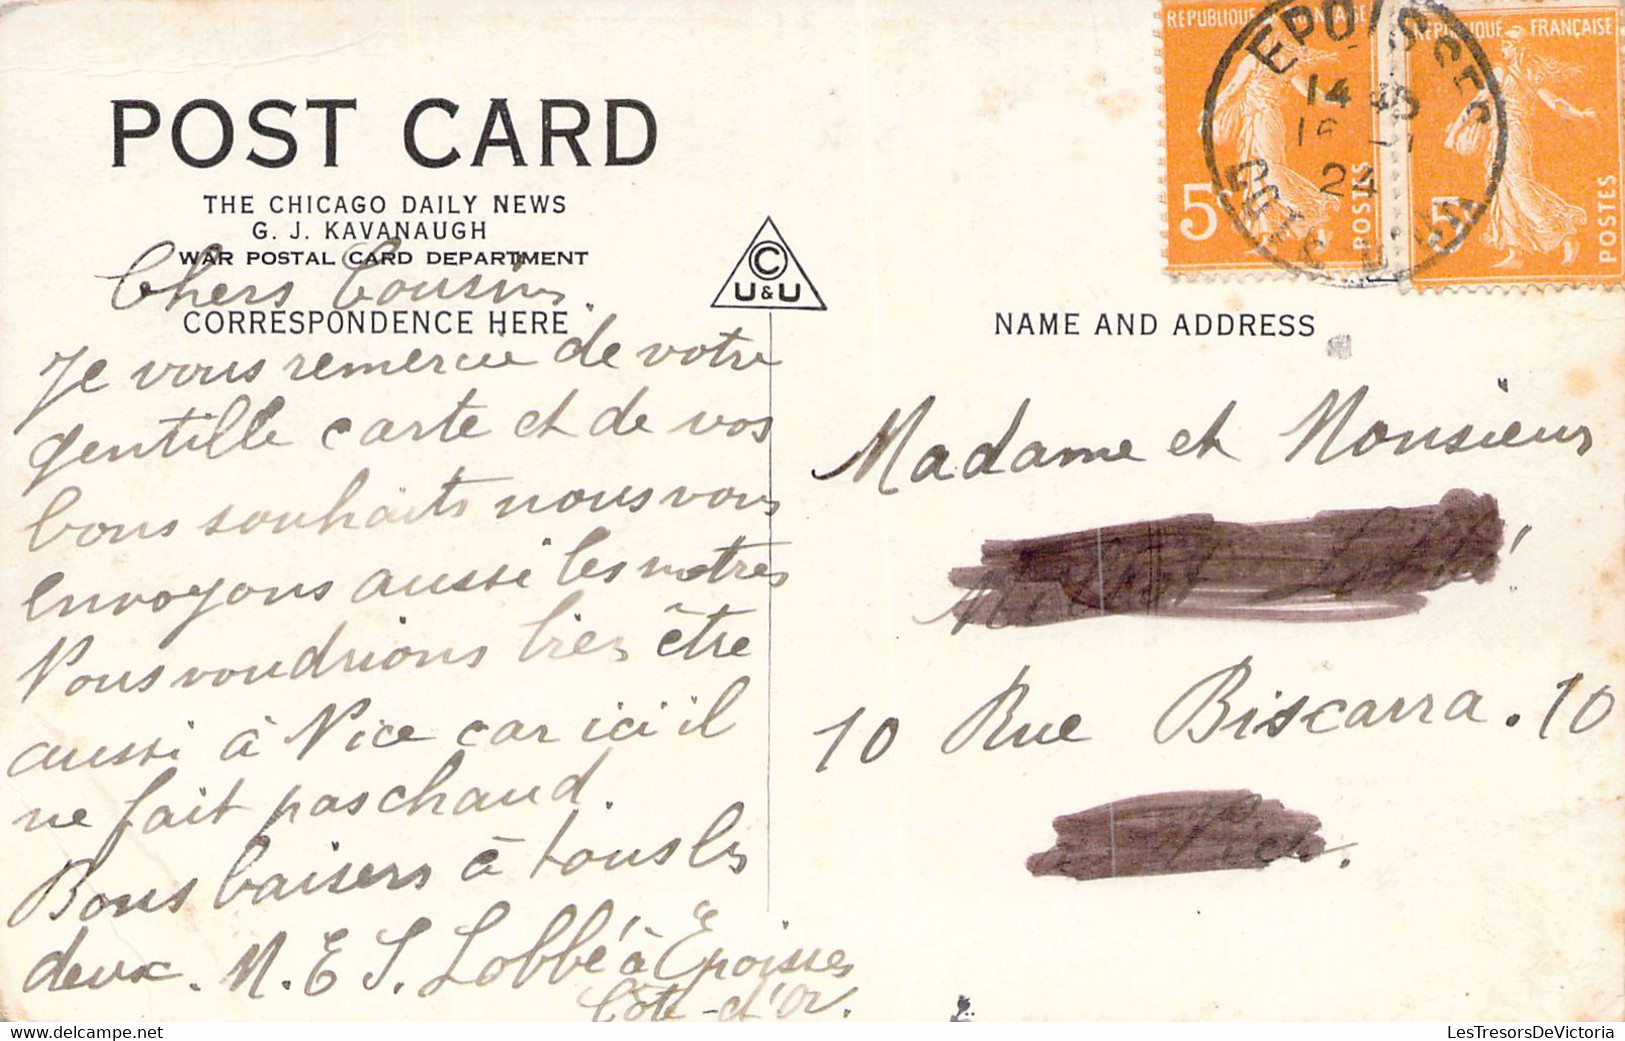 POST CARD
THE CHICAGO DAILY NEWS
G. J. KAVANAUGH
WAR POSTAL CARD DEPARTMENT
CORRESPONDENCE HERE
Chers Cousins.
Je vous remercie de votre
gentille carte et de vos
bons souhaits nous vous
envoyons aussi les notres
Nous voudrions bien être
aussi à Nice car ici il
ne fait pas chaud.
Bons baisers à tous les
deux. M. E S. Lobbé à Epoisses
Côte-d'Or.
C
U&U
REPUBLIQUE FRANÇAISE
5
POSTES
REPUBLIQUE FRANÇAISE
5
POSTES
EPOISSES
14 40
24
COTE D'OR
NAME AND ADDRESS
Madame et Monsieur
10 Rue Biscarra. 10
Nice.
LesTresorsDeVictoria